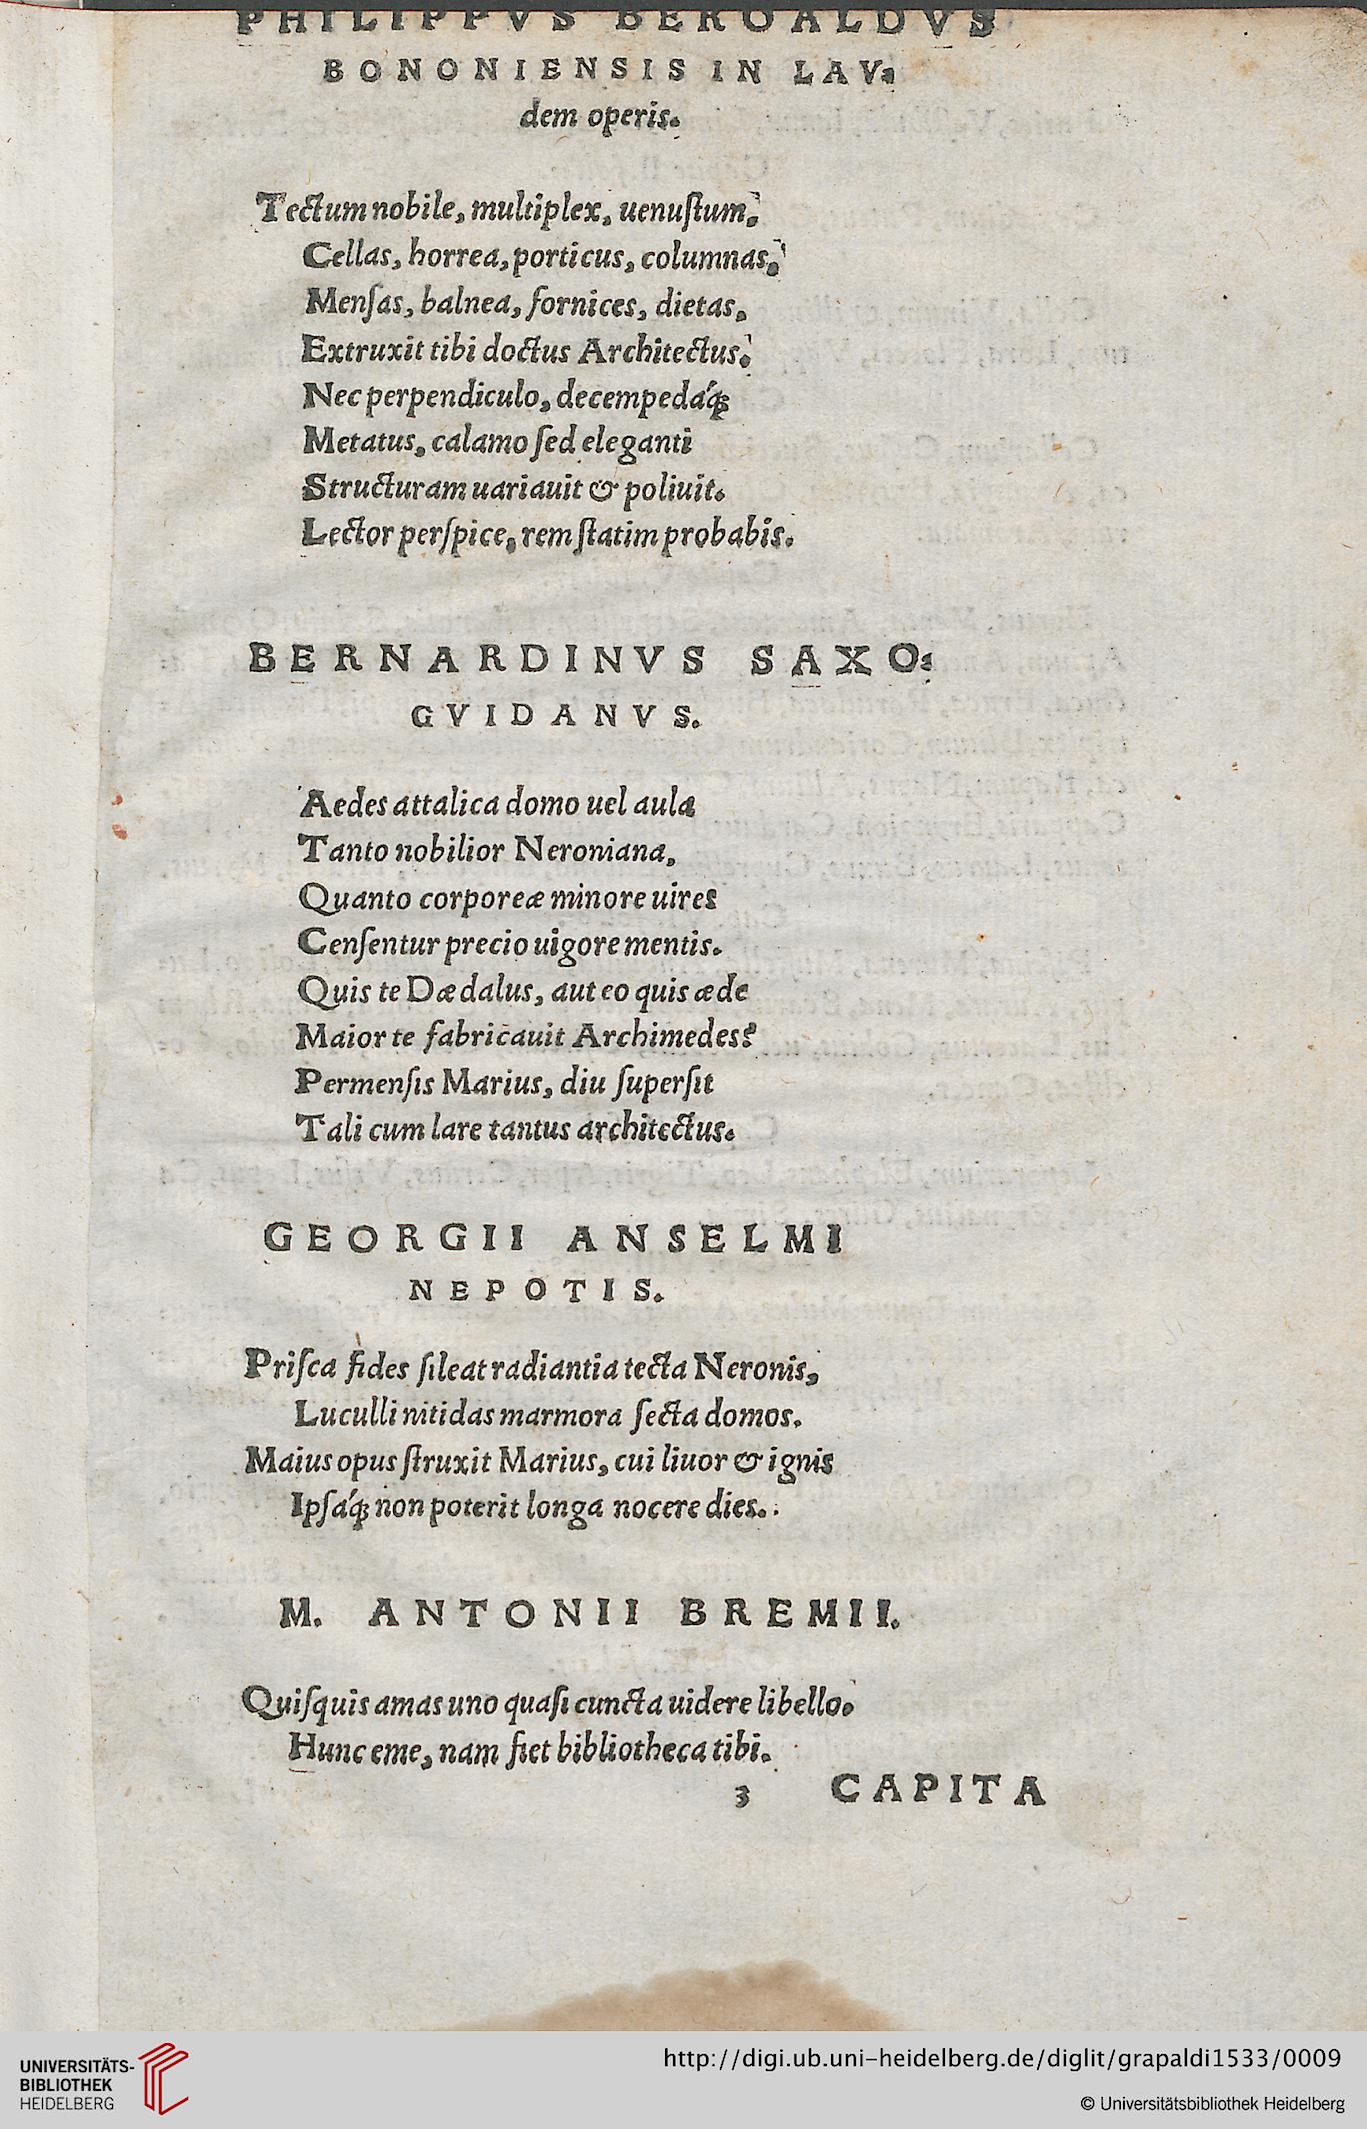 PHILIPPVS BEROALDVS
BONONIENSIS IN LAV-
dem operis.
Tectum nobile, multiplex, uenuſtum,
Cellas, horrea, porticus, columnas,
Menſas, balnea, fornices, dietas,
Extruxit tibi doctus Architectus.
Nec perpendiculo, decempedáq;
Metatus, calamo ſed eleganti
Structuram uariauit & poliuit.
Lector perſpice, rem ſtatim probabis.
BERNARDINVS SAXO-
GVIDANVS.
Aedes attalica domo uel aula
Tanto nobilior Neroniana,
Quanto corporeæ minore uires
Cenſentur precio uigore mentis.
Quis te Dædalus, aut eo quis æde
Maior te fabricauit Archimedes?
Permenſis Marius, diu ſuperſit
Tali cum lare tantus architectus.
GEORGII ANSELMI
NEPOTIS.
Priſca fides ſileat radiantia tecta Neronis,
Luculli nitidas marmora ſecta domos.
Maius opus ſtruxit Marius, cui liuor & ignis
Ipſáq; non poterit longa nocere dies.
M. ANTONII BREMII.
Quiſquis amas uno quaſi cuncta uidere libello.
Hunc eme, nam fiet bibliotheca tibi.
3 CAPITA
UNIVERSITÄTS-
BIBLIOTHEK
HEIDELBERG
http://digi.ub.uni-heidelberg.de/diglit/grapaldi1533/0009
© Universitätsbibliothek Heidelberg